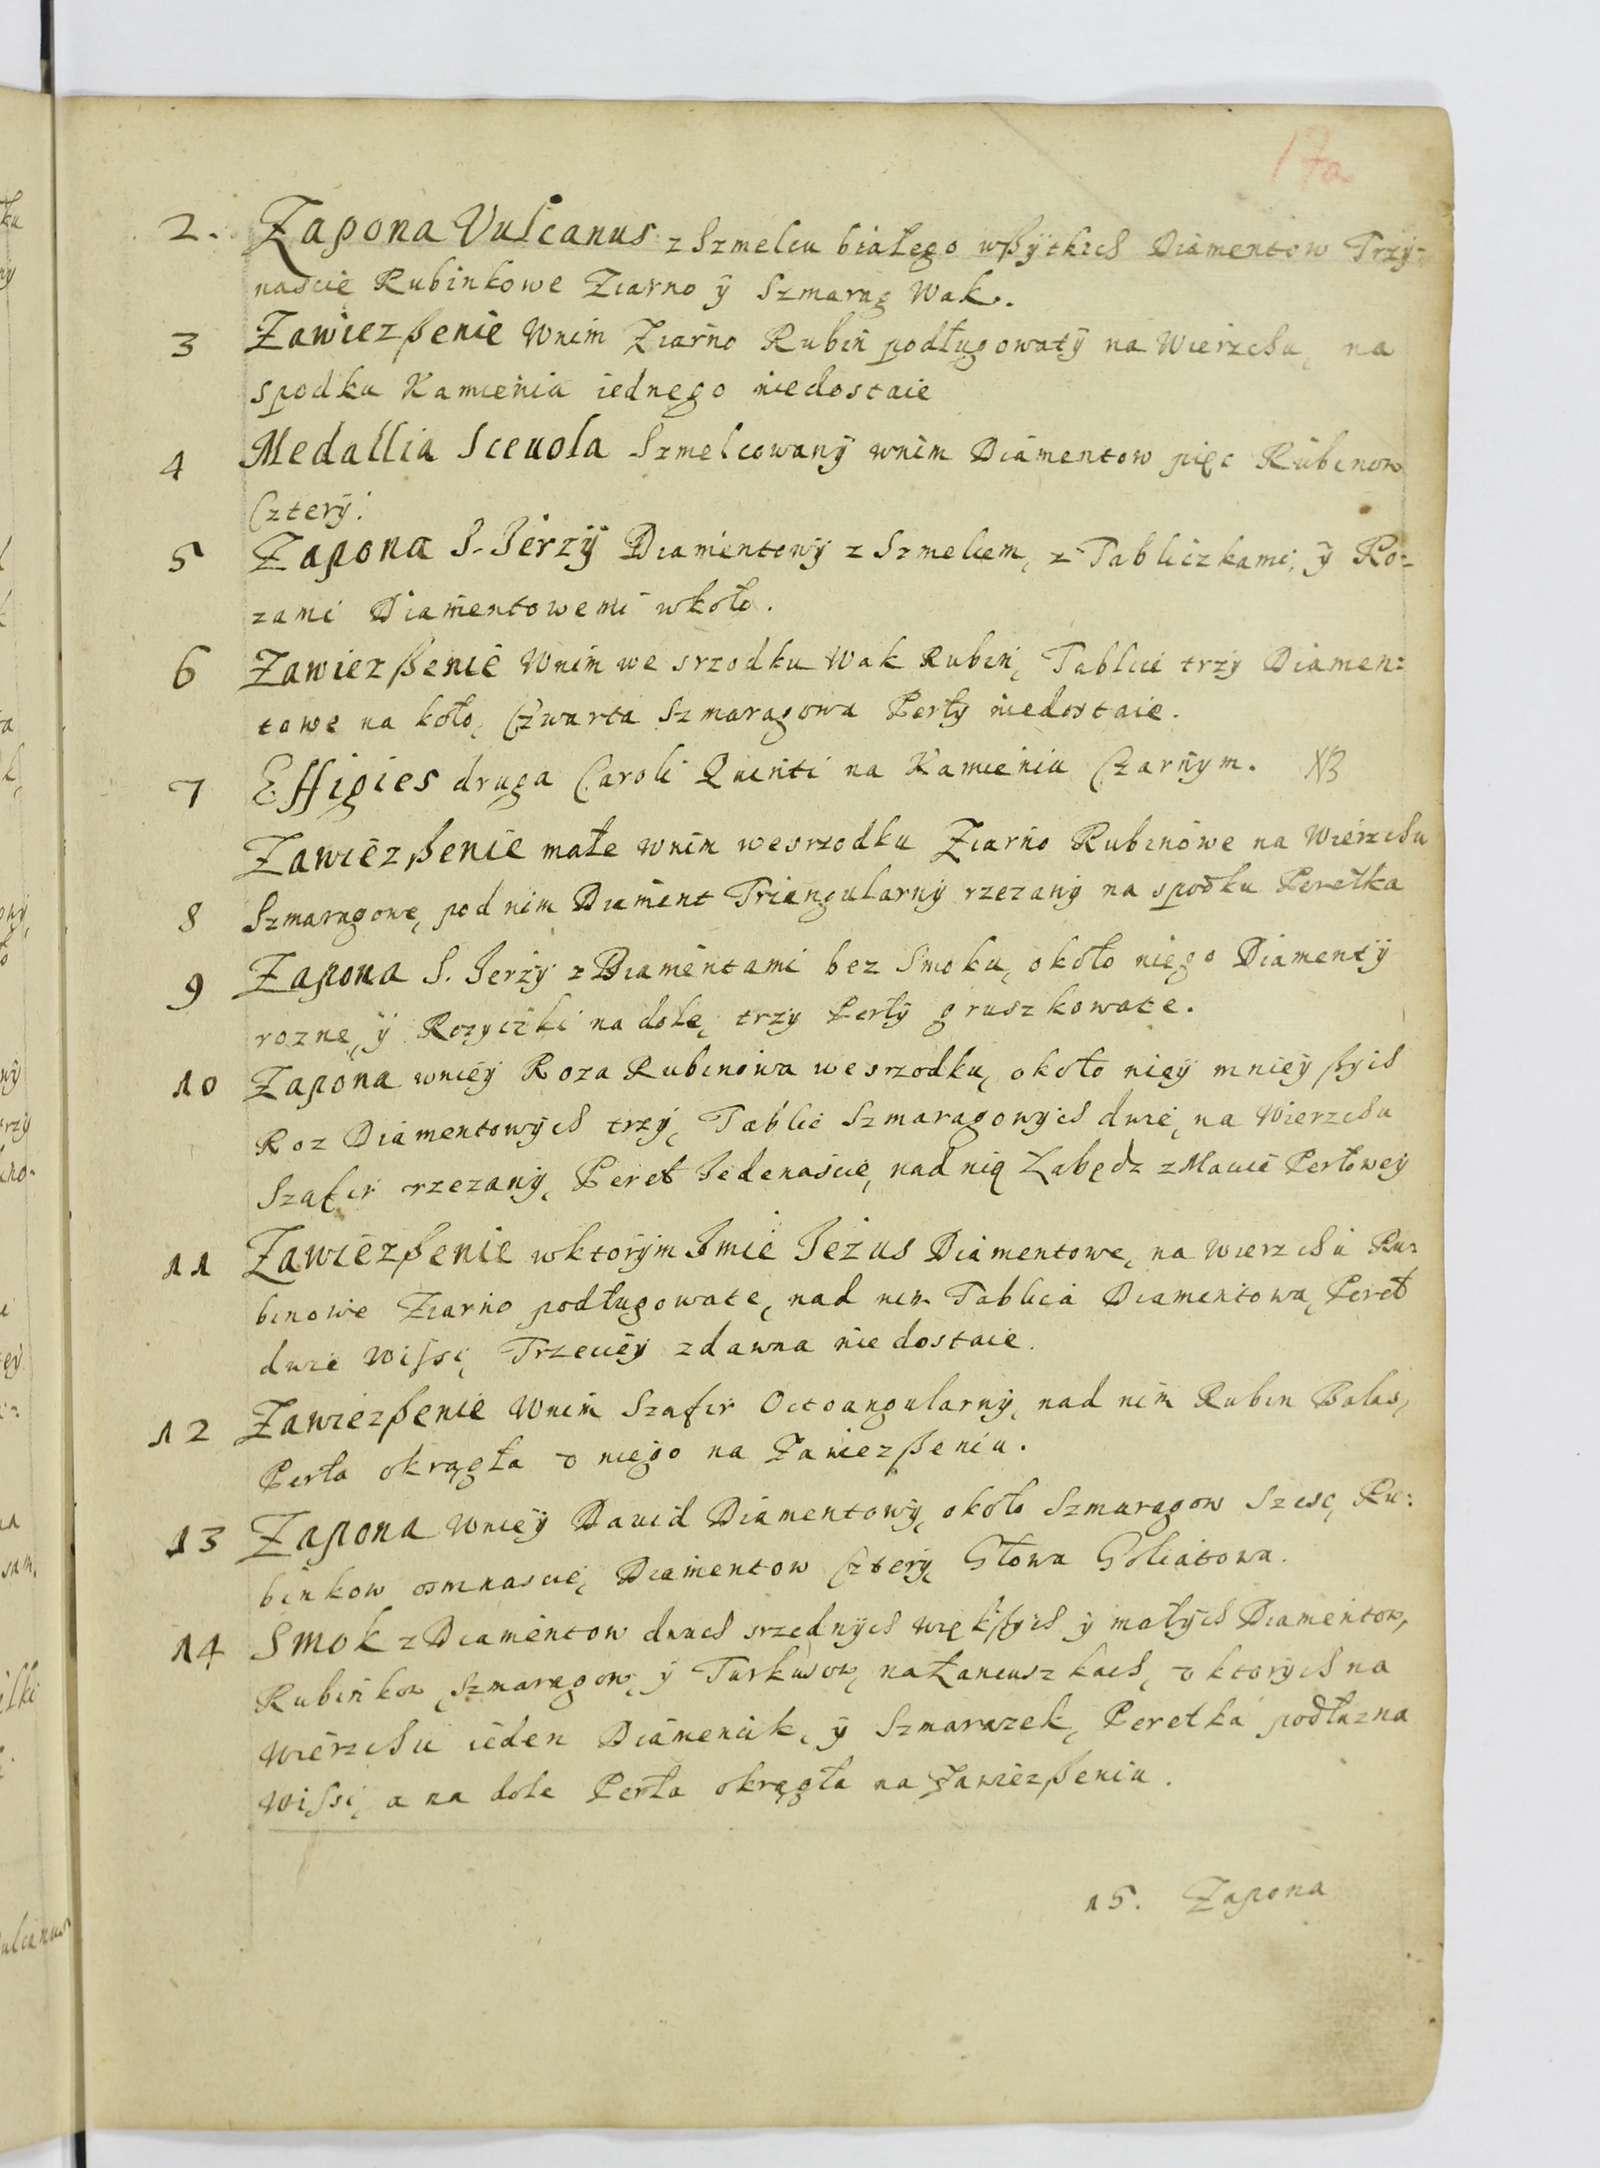 17a
2. Zapona Vulcanus z Szmelcu białego wßÿtkich Diamentow Trzÿ-
naście Rubinkowe Ziarno ÿ Szmarag Wak.
3 Zawiezßenie Wnim Ziarno Rubin podługowatÿ na Wierzchu, na
spodku Kamienia iednego niedostaie
4 Medallia Sceuola Szmelcowanÿ wnim Diamentow pięc Rubinow
Czterÿ.
5 Zapona S. Jerzÿ Diamentowÿ z Szmelcem, z Tabliczkami, ÿ Ro:
zami Diamentowemi wkoło.
6 Zawiezßenie Wnim we srzodku Wak Rubin, Tablic trzÿ Diamen:
towe na koło, Czwarta Szmaragowa Perłÿ niedostaie.
7 Effigies druga Caroli Quinti na Kamieniu Czarnÿm. NB
Zawiezßenie małe wnim wesrzodku Ziarno Rubinowe na Wierzchu
8 Szmaragowe, pod nim Diament Triangularnÿ rzezanÿ na spodku Perełka
9 Zapona S. Jerzÿ z Diamentami bez Smoku, około niego Diamentÿ
rozne, ÿ Rozyczki na dole, trzy Perłÿ gruszkowate.
10 Zapona wnieÿ Roza Rubinowa wesrzodku, około nieÿ mnieÿßych
Roz Diamentowÿch trzÿ, Tablic Szmaragowÿch dwie, na Wierzchu
Szafir rzezanÿ, Pereł Jedenaście, nad nią Łabędz z Macic Perłoweÿ
11 Zawiezßenie wktorÿm Jmie Jezus Diamentowe, na wierzchu Ru:
binowe Ziarno podługowate, nad nim Tablica Diamentowa, Pereł
dwie Wissi, Trzecieÿ zdawna nie dostaie.
12 Zawiezßenie Wnim Szafir Octoangularnÿ, nad nim Rubin Balas,
Perła okrągła v niego na Zawiezßeniu.
13 Zapona Wnieÿ Dauid Diamentowÿ, około Szmaragow Szesc, Ru:
binkow osmnascie, Diamentow Czterÿ, Głowa Goliatowa.
14 Smok z Diamentow dwuch srzednÿch więkßych ÿ małÿch Diamentow,
Rubinkow, Szmaragow, ÿ Turkusow, na Łancuszkach, v ktorÿch na
Wierzchu ieden Diamencik, ÿ Szmarazek, Perełka podłuzna
Wissi, a na dole Perła okrągła na Zawiezßeniu.
15. Zapona